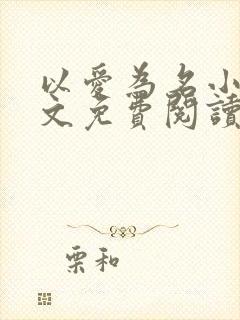 以愛為名小
文免費閱讀
栗和